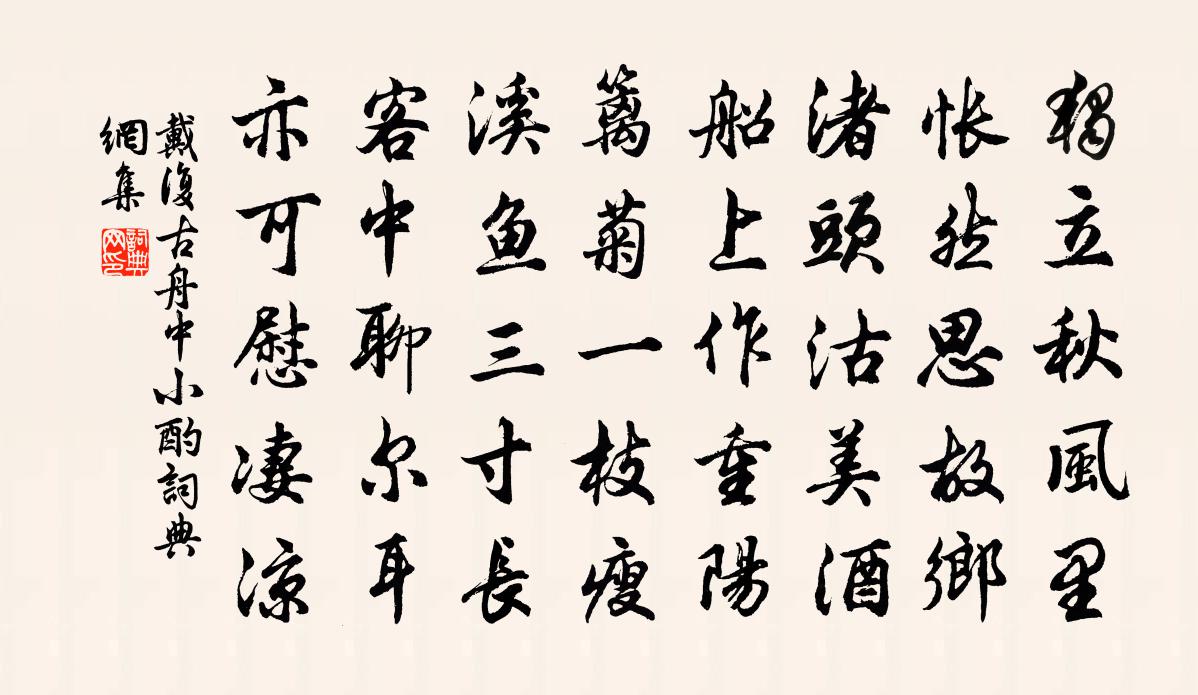 獨立秋風里
悵然思故鄉
渚頭沽美酒
船上作重陽
籬菊一枝瘦
溪鱼三寸長
客中聊尔耳
亦可慰凄涼
戴復古舟中小酌詞典
網集
詞典网印